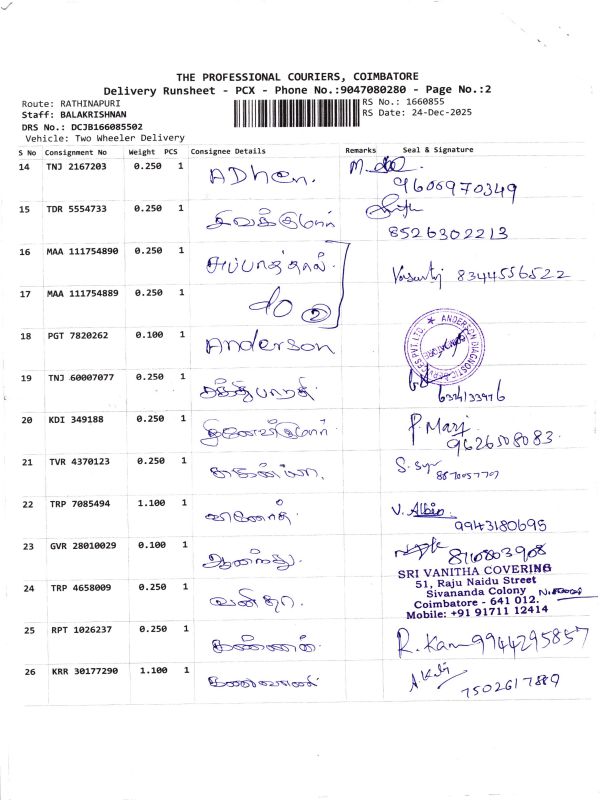 THE PROFESSIONAL COURIERS, COIMBATORE
Delivery Runsheet - PCX - Phone No.:9047080280 - Page No.:2
Route: RATHINAPURI
RS No.: 1660855
Staff: BALAKRISHNAN
RS Date: 24-Dec-2025
DRS No.: DCJB166085502
Vehicle: Two Wheeler Delivery
S No Consignment No Weight PCS Consignee Details Remarks Seal & Signature
14 TNJ 2167203 0.250 1 ADhen. M.
9600970349
15 TDR 5554733 0.250 1 சிவக்குமார்
8526302213
16 MAA 111754890 0.250 1 அப்பாத்தாள்.
8344556522
17 MAA 111754889 0.250 1 do 2
18 PGT 7820262 0.100 1 Anderson
ANDERSON DIAGNOSTIC SERVICES PVT. LTD.
19 TNJ 60007077 0.250 1 சக்திபாரதி.
20 KDI 349188 0.250 1 P. Mari
9626508083.
21 TVR 4370123 0.250 1 சுகன்யா.
22 TRP 7085494 1.100 1 வினோத். V. Albin
9943180695
23 GVR 28010029 0.100 1 ஆனந்து.
8710803908
SRI VANITHA COVERING
51, Raju Naidu Street
Sivananda Colony
Coimbatore - 641 012.
Mobile: +91 91711 12414
24 TRP 4658009 0.250 1 வனிதா.
25 RPT 1026237 0.250 1 கண்ணன். R. Kan 9944295857
26 KRR 30177290 1.100 1 கலைவாணி
7502617889